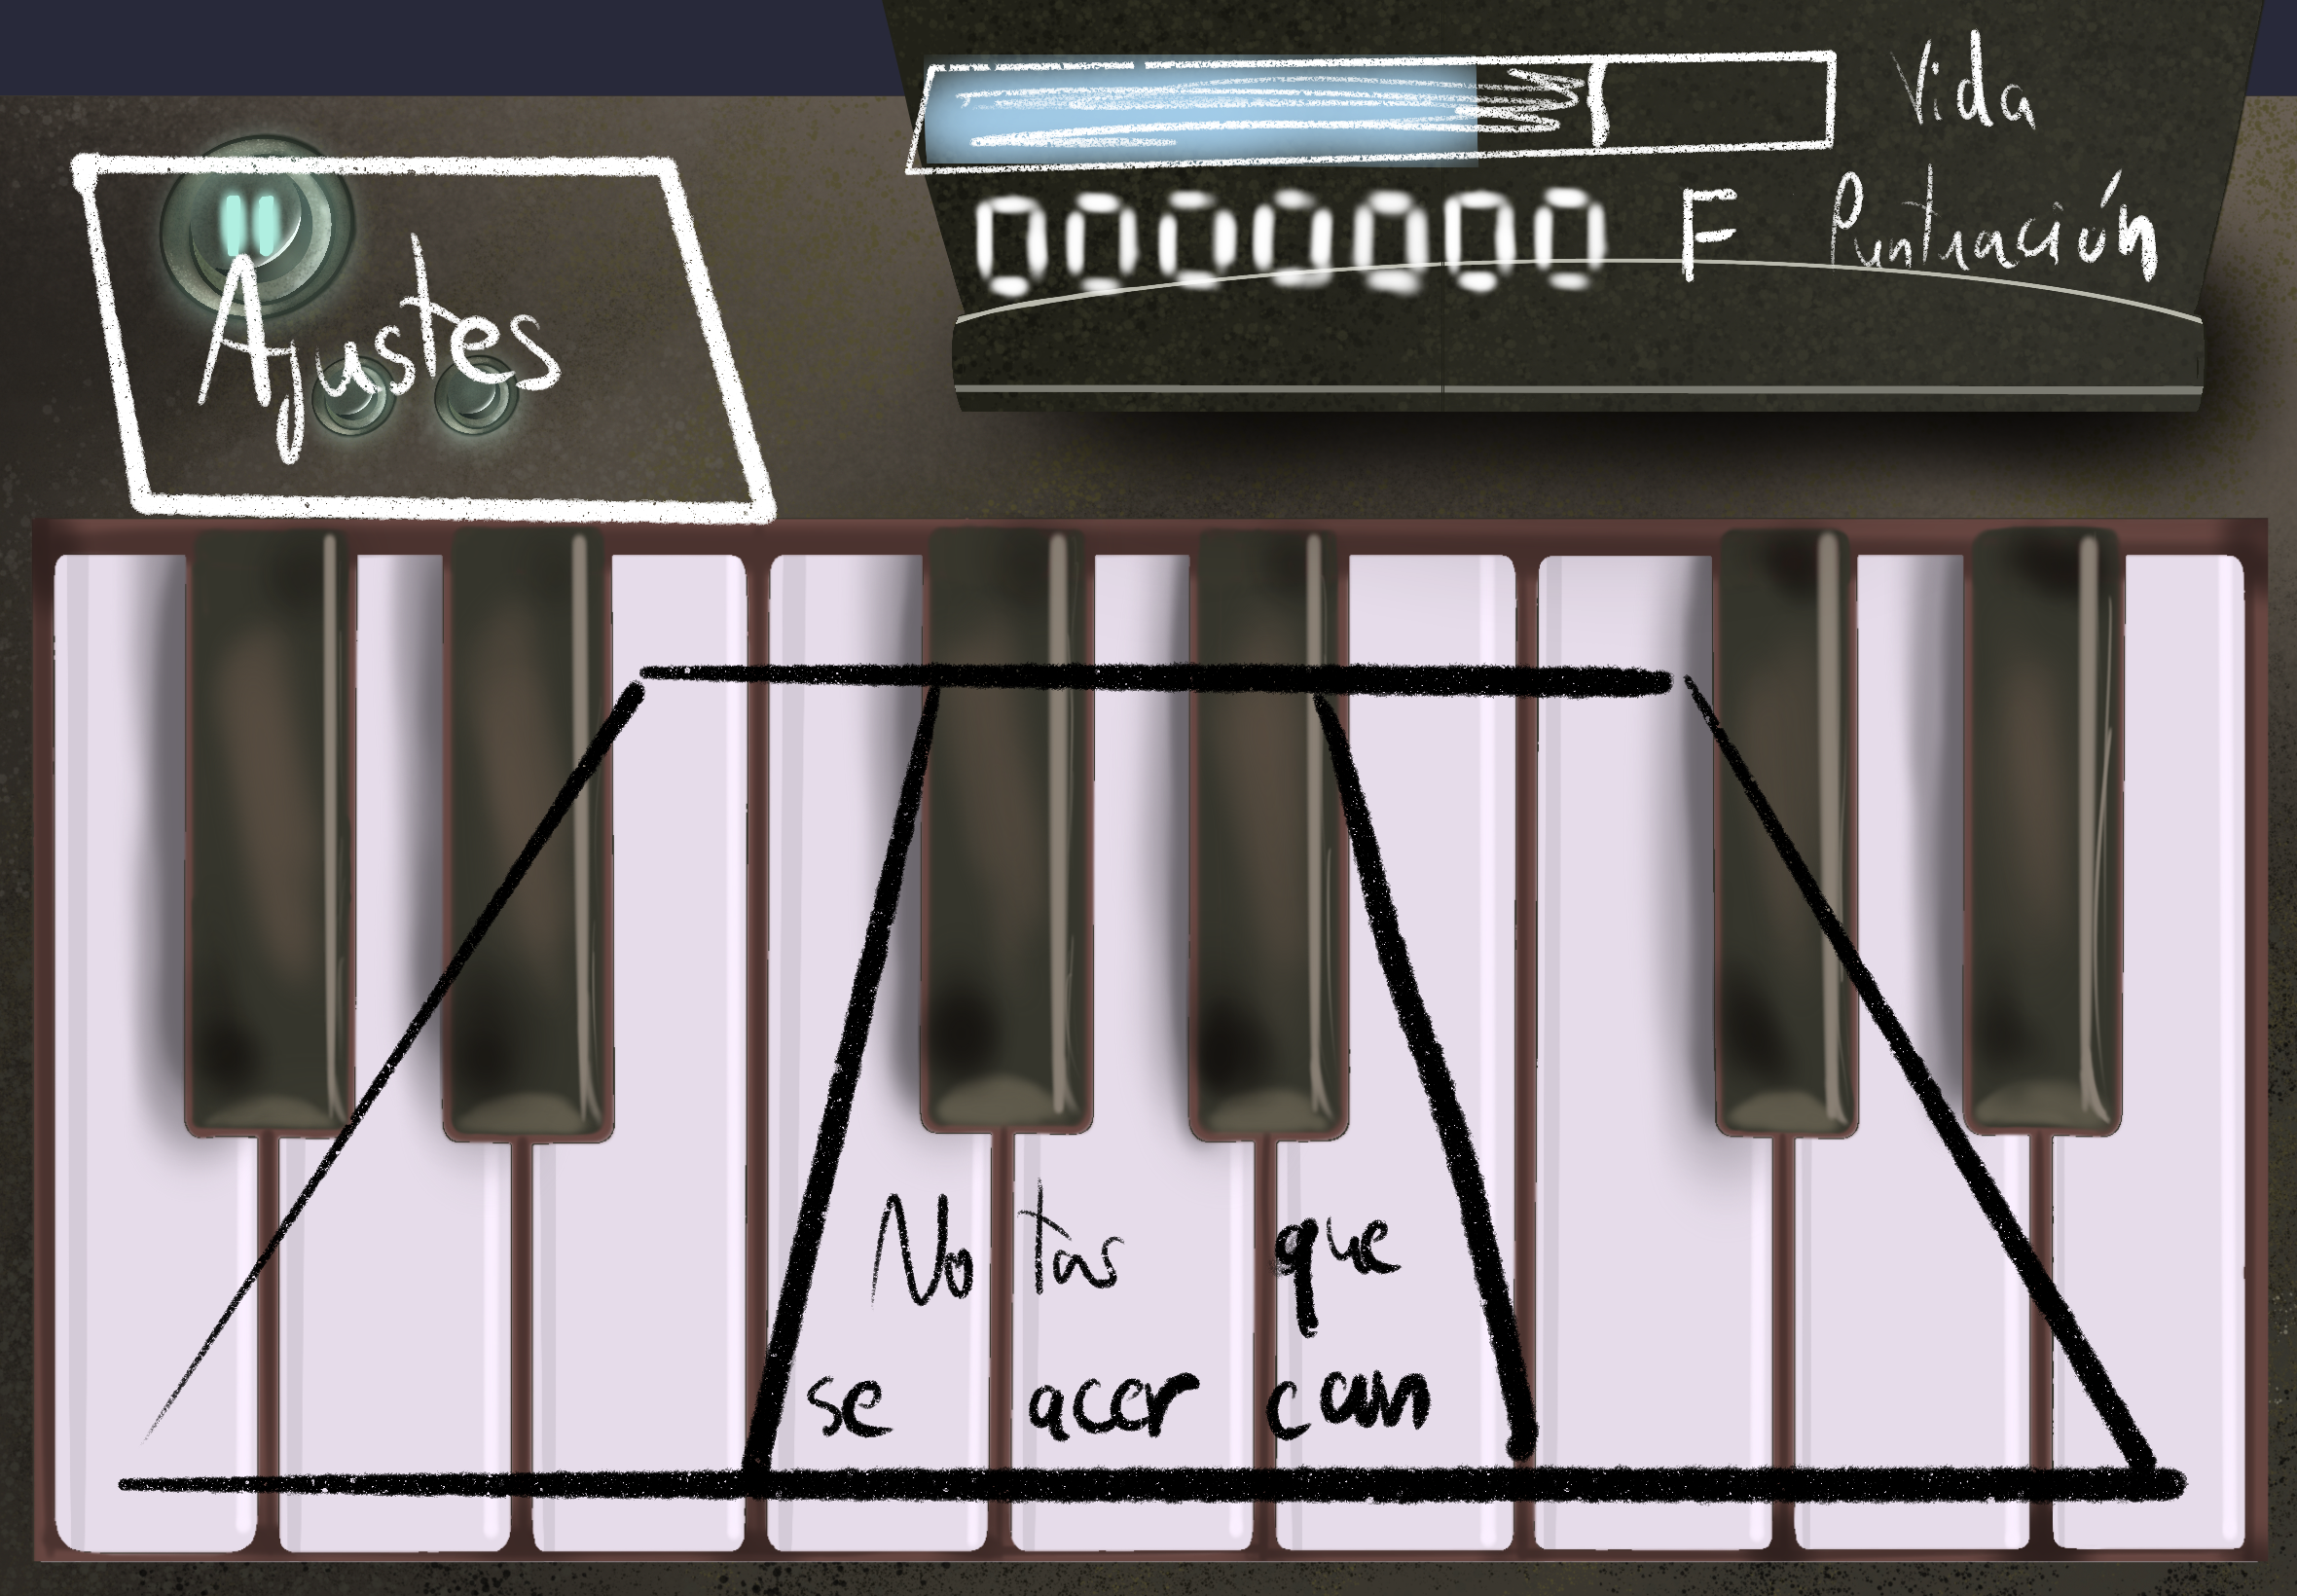 Vida
0000000 F Puntuación
Ajustes
Notas que
se acercan